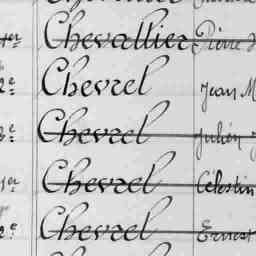 1er Chevallier Pierre
2e Chevrel Jean M
2e Chevrel Julien
1er Chevrel Célestin
2e Chevrel Ernest